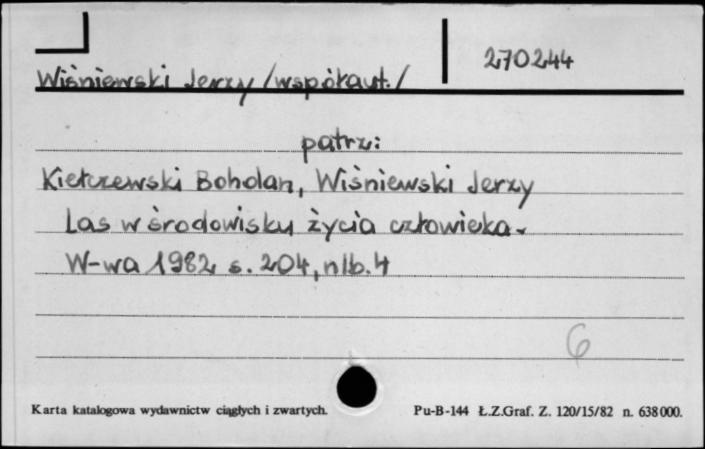 270244
Wiśniewski Jerzy /współaut./
patrz:
Kiełczewski Bohdan, Wiśniewski Jerzy
Las w środowisku życia człowieka.
W-wa 1982 s. 204, nlb. 4
6
Karta katalogowa wydawnictw ciągłych i zwartych. Pu-B-144 Ł.Z.Graf. Z. 120/15/82 n. 638000.